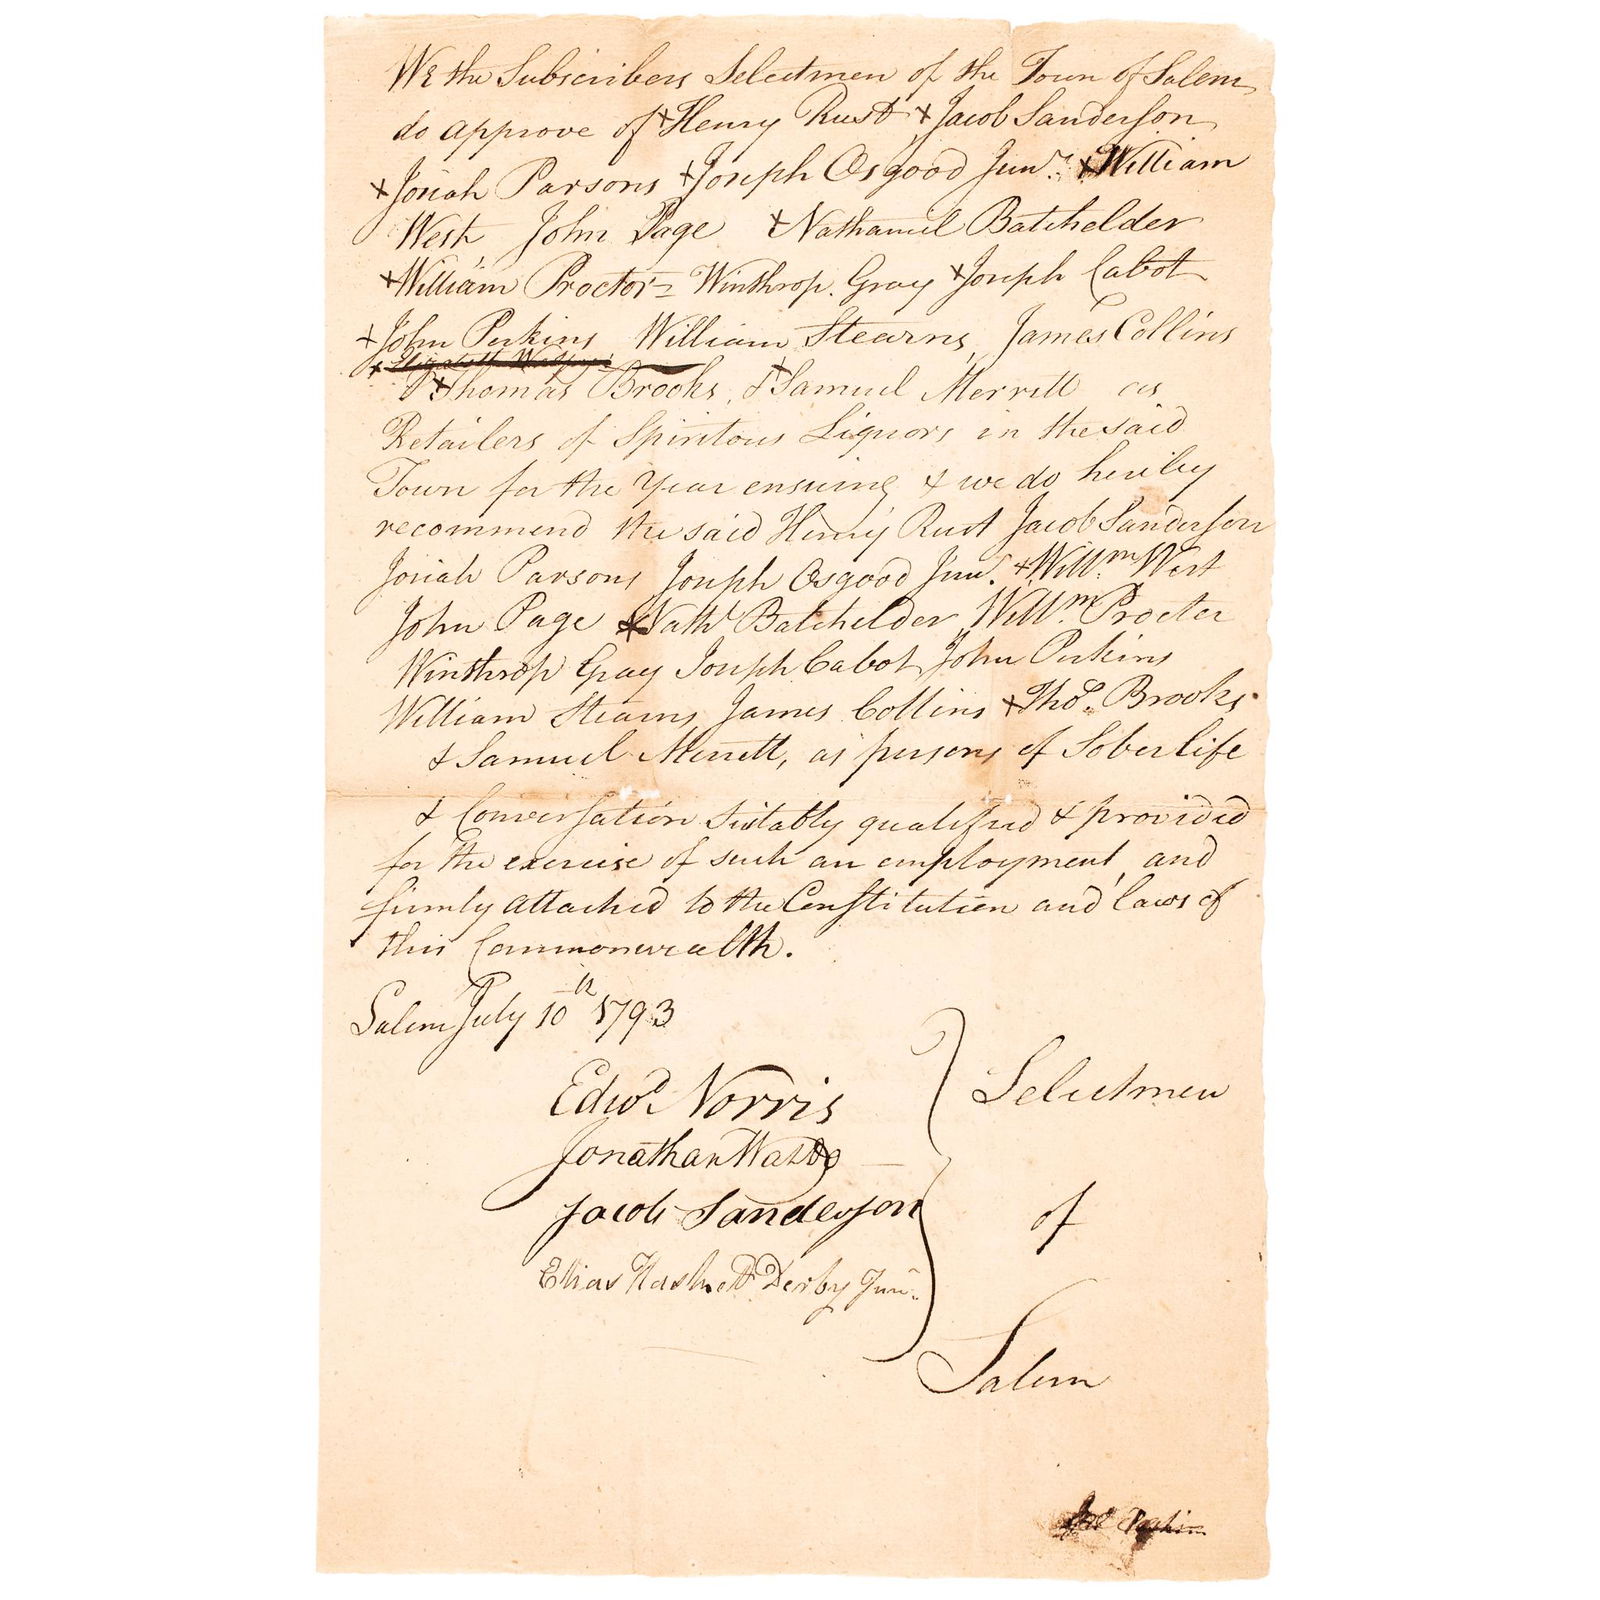 We the Subscribers Selectmen of the Town of Salem
do approve of +Henry Rust +Jacob Sanderson
+Josiah Parsons +Joseph Osgood Junr. +William
West John Page +Nathaniel Batchelder
+William Proctor= Winthrop. Gray +Joseph Cabot
+John Perkins William Stearns, James Collins
+Thomas Brooks, & +Samuel Merrett as
Retailers of Spiritous Liquors in the said
Town for the Year ensuing & we do hereby
recommend the said Henry Rust Jacob Sanderson
Josiah Parsons Joseph Osgood Junr. +Willm. West
John Page +Nathl Batchelder Willm. Procter
Winthrop Gray Joseph Cabot John Perkins
William Stearns James Collins +Thos. Brooks
& Samuel Merrett, as persons of Sober life
& Conversation suitably qualified & provided
for the exercise of such an employment, and
firmly attached to the Constitution and Laws of
this Commonwealth.
Salem July 10th 1793
Edwd. Norris
Jonathan
Jacob Sanderson
Elias Hasket Derby Jun.
Selectmen
of
Salem